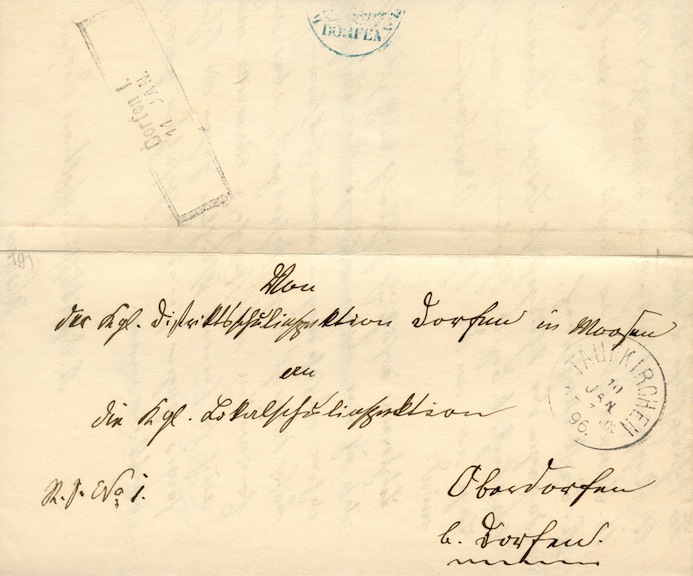 DORFEN
Dorfen I.
11 JAN.
Von
der Kgl. Distriktsschulinspektion Dorfen in Moosen
an
die Kgl. Lokalschulinspektion
TAUFKIRCHEN
10
JAN
96.
R. S. No 1.
Oberdorfen
b. Dorfen.